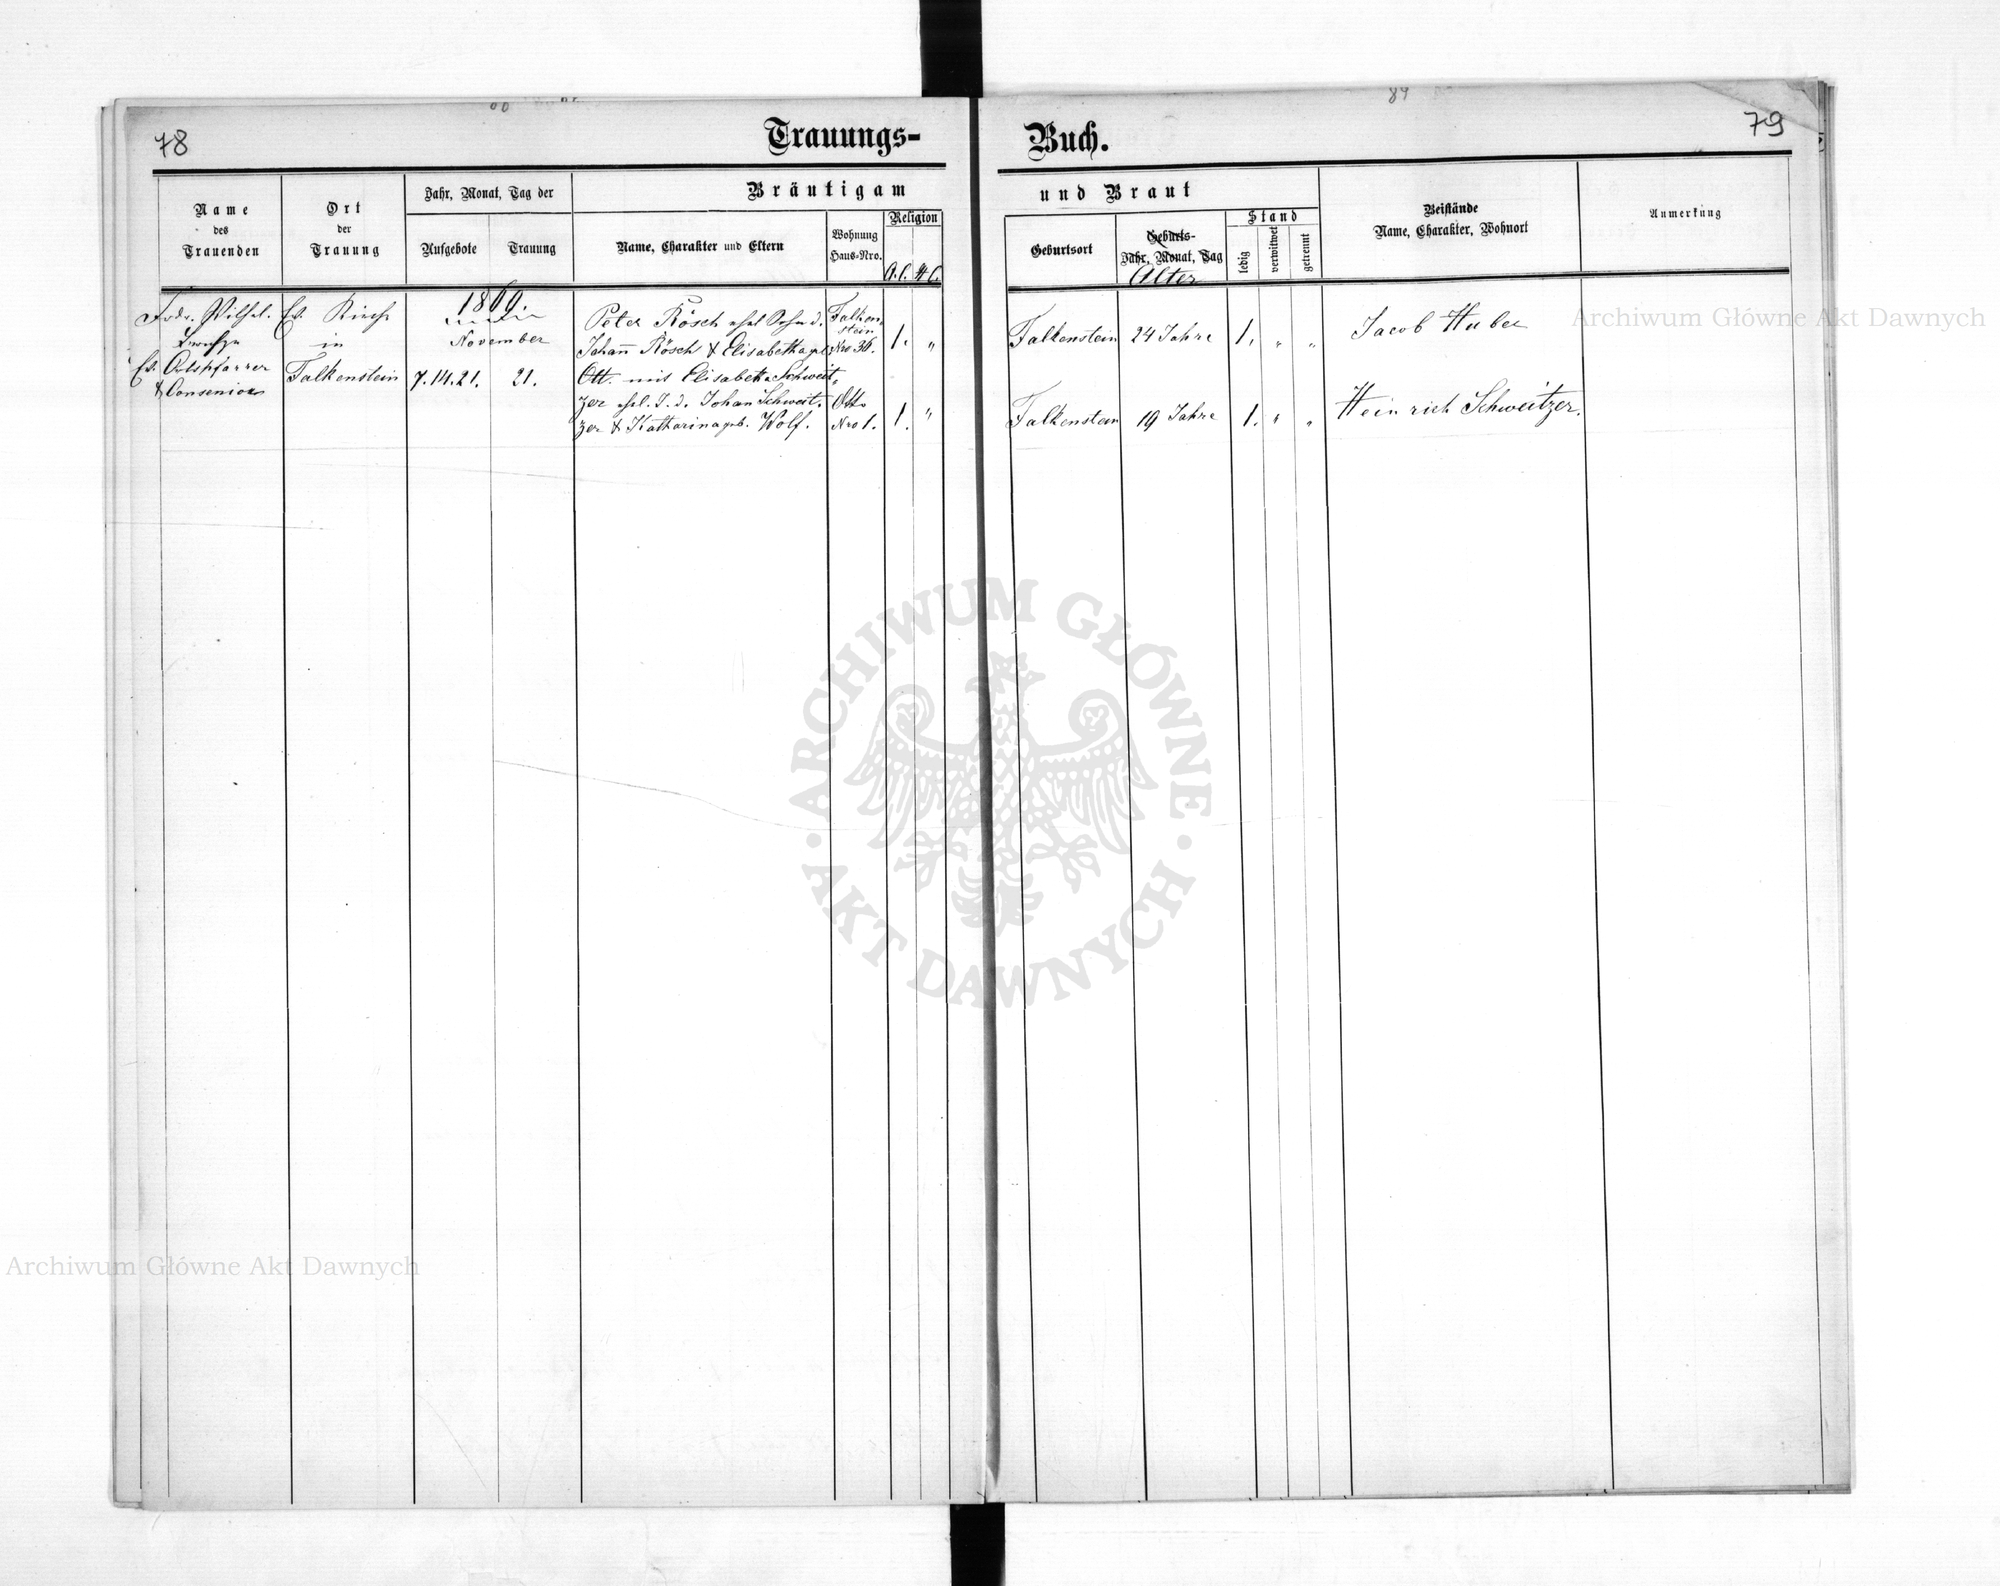 78
Trauungs-
Name
des
Trauenden
Ort
der
Trauung
Jahr, Monat, Tag der
Aufgebote
Trauung
Bräutigam
Name, Charakter und Eltern
Wohnung
Haus-Nro.
Religion
A.C.
H.C.
Frdr. Wilhel.
Ev. Ortspfarrer
& Consenior
Ev. Kirche
in
Falkenstein
1869.
November
7.14.21.
21.
Peter Rösch ehel Sohn d.
Johann Rösch & Elisabetha geb.
Ott. mit Elisabetha Schweit-
zer ehel. T. d. Johan Schweit-
zer & Katharina geb. Wolf.
Falken-
stein
Nro 36.
Otto
Nro 1.
1.
"
1.
"
79
84
Buch.
und Braut
Geburtsort
Geburts-
Jahr, Monat, Tag
Alter
Stand
ledig
verwitwet
getrennt
Beistände
Name, Charakter, Wohnort
Anmerkung
Falkenstein
24 Jahre
1.
"
"
Jacob Huber
Falkenstein
19 Jahre
1.
"
"
Heinrich Schweitzer.
Archiwum Główne Akt Dawnych
ARCHIWUM GŁÓWNE
AKT DAWNYCH
Archiwum Główne Akt Dawnych